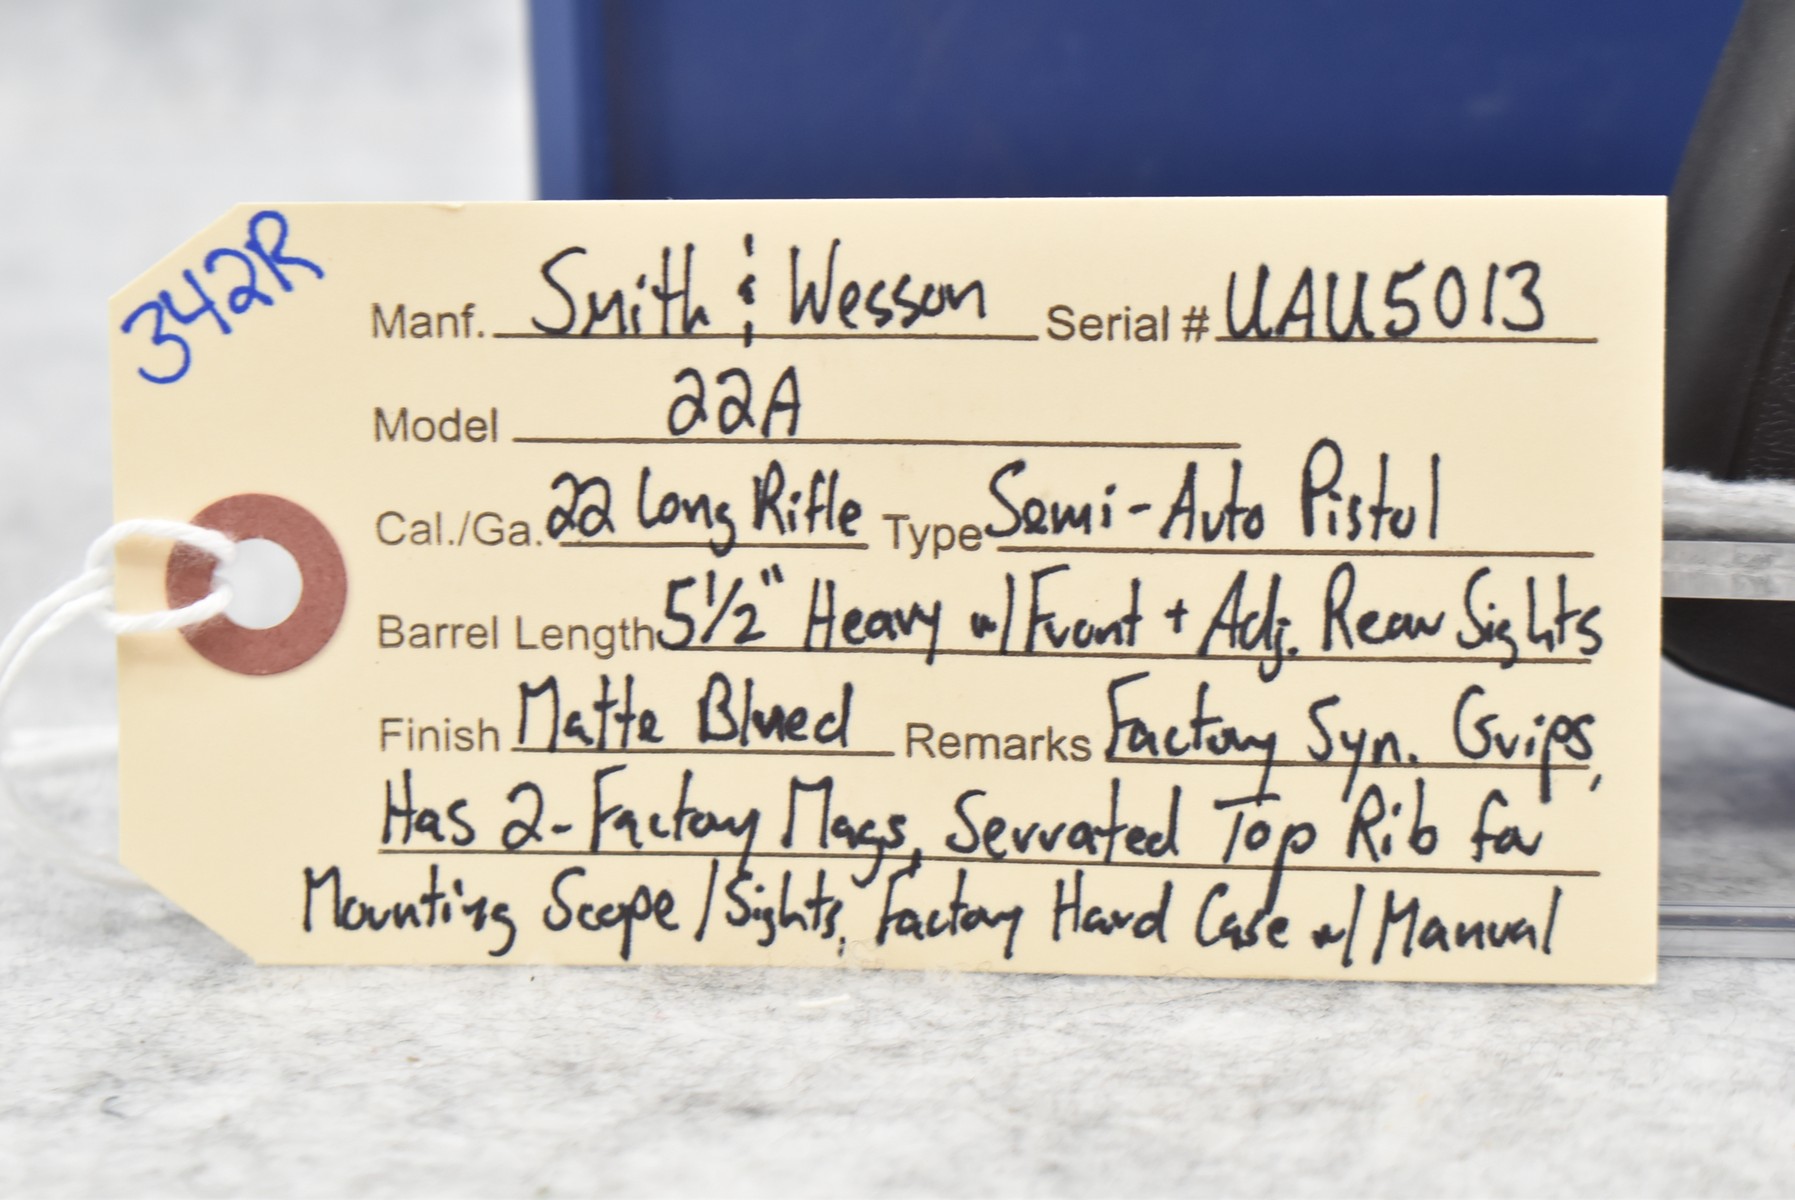 342R
Manf. Smith & Wesson Serial # UAU5013
Model 22A
Cal./Ga. 22 Long Rifle Type Semi-Auto Pistol
Barrel Length 5 1/2" Heavy w/ Front + Adj. Rear Sights
Finish Matte Blued Remarks Factory Syn. Grips,
Has 2-Factory Mags, Serrated Top Rib for
Mounting Scope/Sights, Factory Hard Case w/ Manual